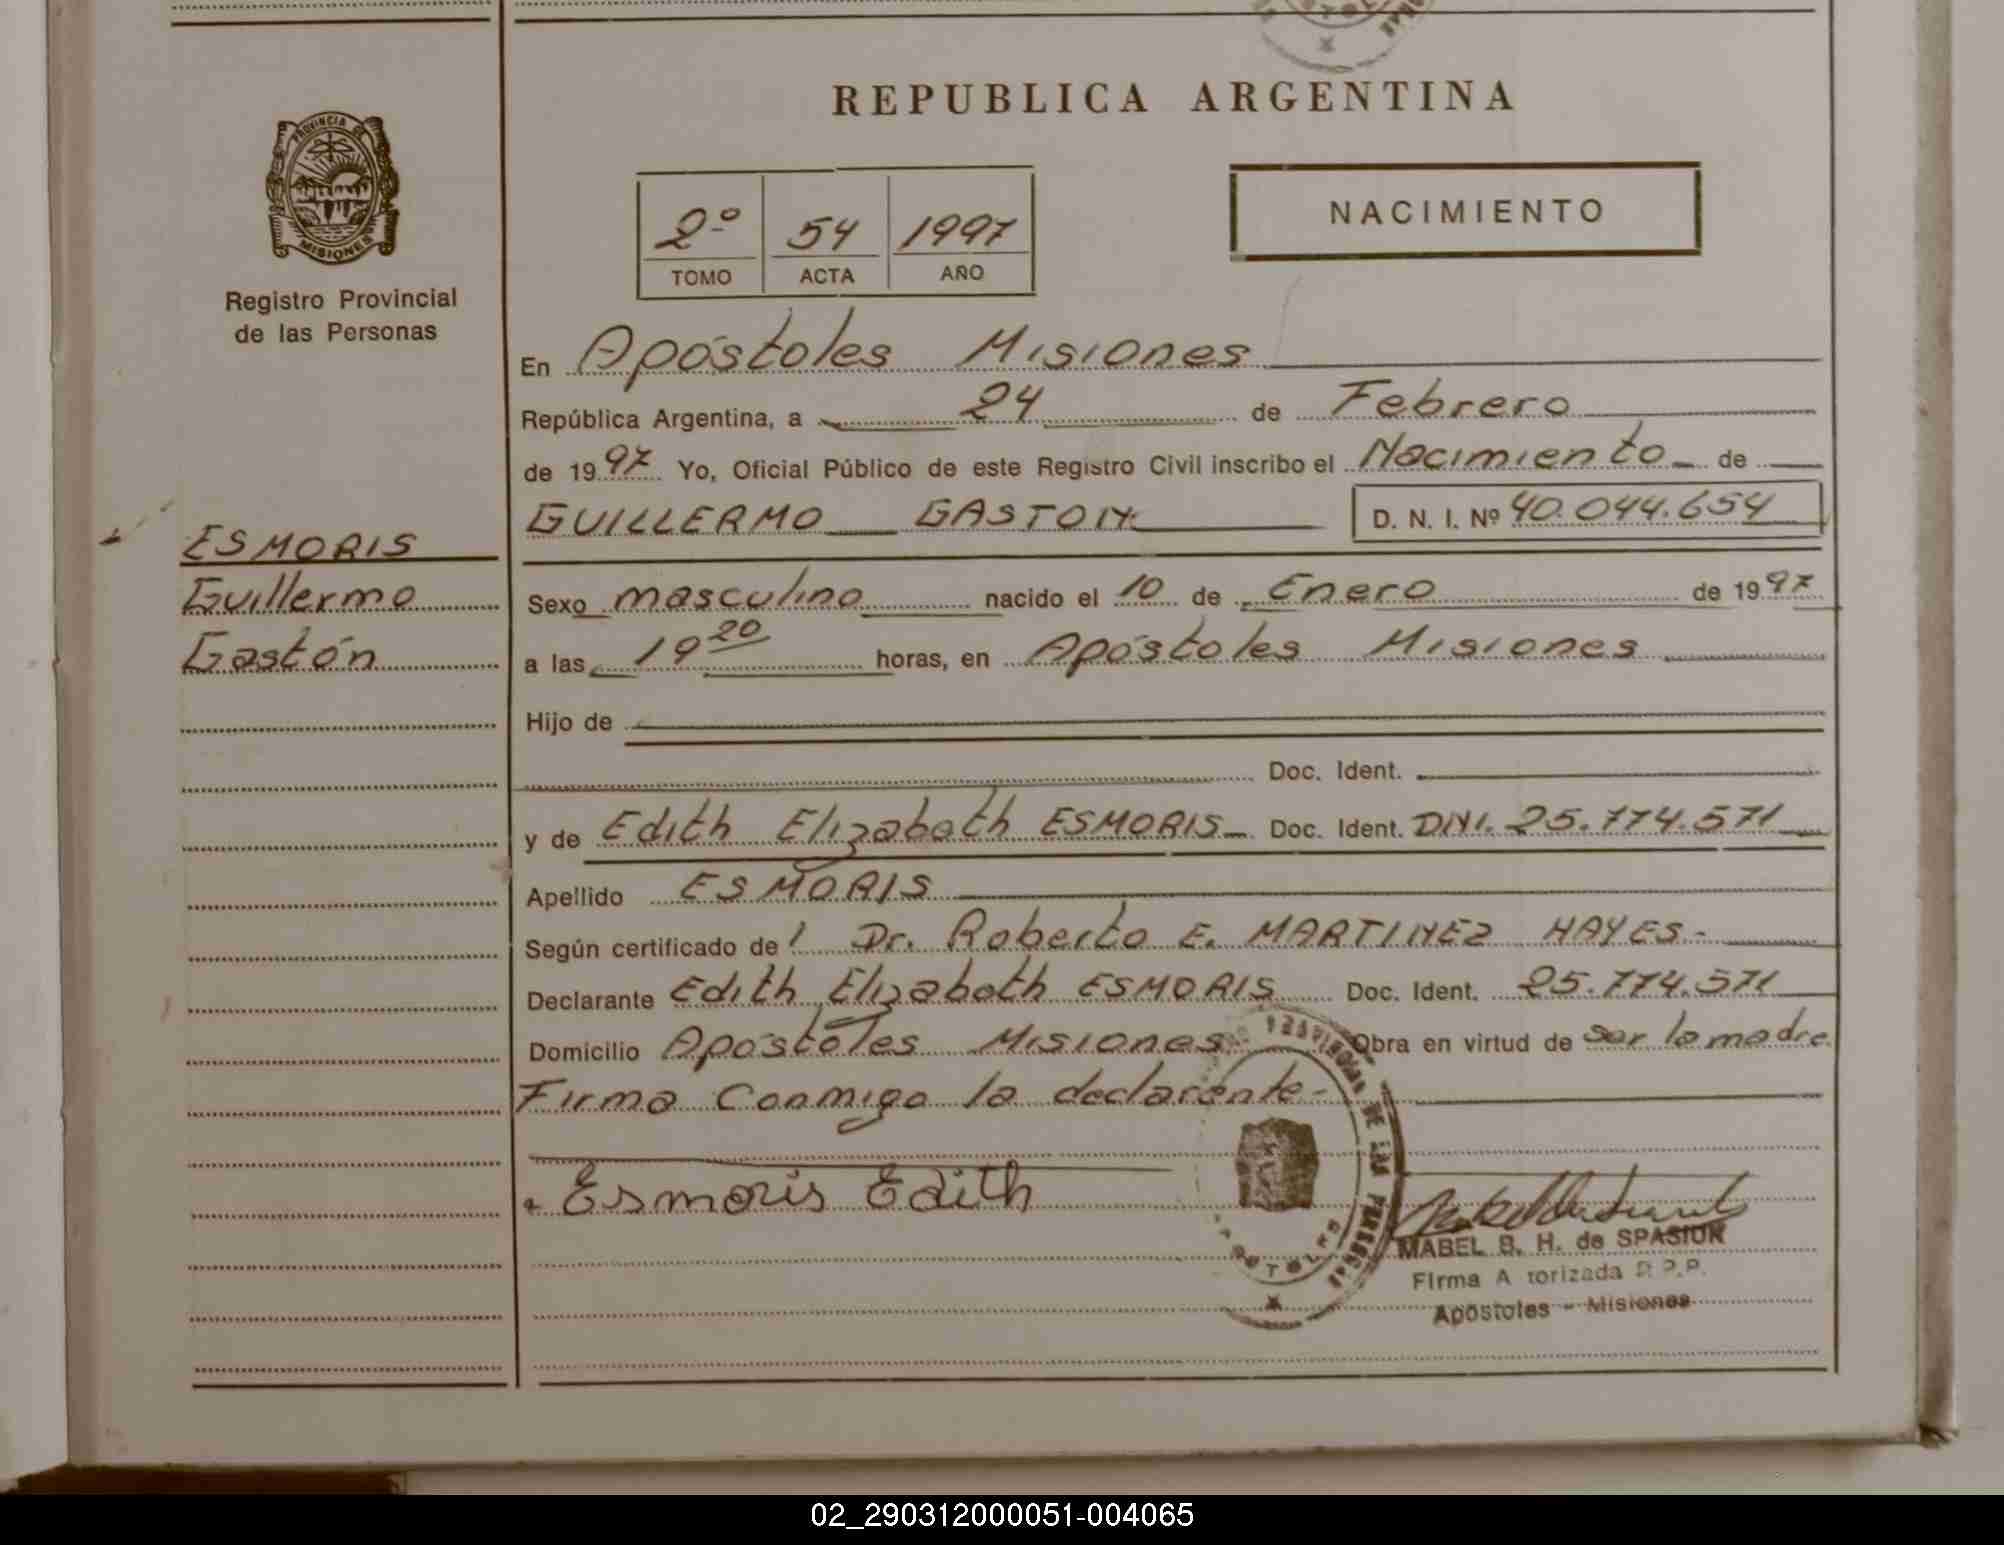 REPUBLICA ARGENTINA
PROVINCIA DE
MISIONES
Registro Provincial
de las Personas
2º 54 1997
TOMO ACTA AÑO
NACIMIENTO
En Apóstoles Misiones
República Argentina, a 24 de Febrero
de 1997 Yo, Oficial Público de este Registro Civil inscribo el Nacimiento de
GUILLERMO GASTON D. N. I. Nº 40.044.654
ESMORIS
Guillermo
Gastón
Sexo masculino nacido el 10 de Enero de 1997
a las 19 20 horas, en Apóstoles Misiones
Hijo de
Doc. Ident.
y de Edith Elizabeth ESMORIS Doc. Ident. DNI. 25.774.571
Apellido ESMORIS
Según certificado de Dr. Roberto E. MARTINEZ HAYES-
Declarante Edith Elizabeth ESMORIS Doc. Ident. 25.774.571
Domicilio Apóstoles Misiones Obra en virtud de ser la madre
Firma Conmigo la declarante-
Esmoris Edith
DE LAS
APOSTOLES
MABEL B. H. de SPASIUK
Firma A torizada R.P.P.
Apóstoles - Misiones
02_290312000051-004065